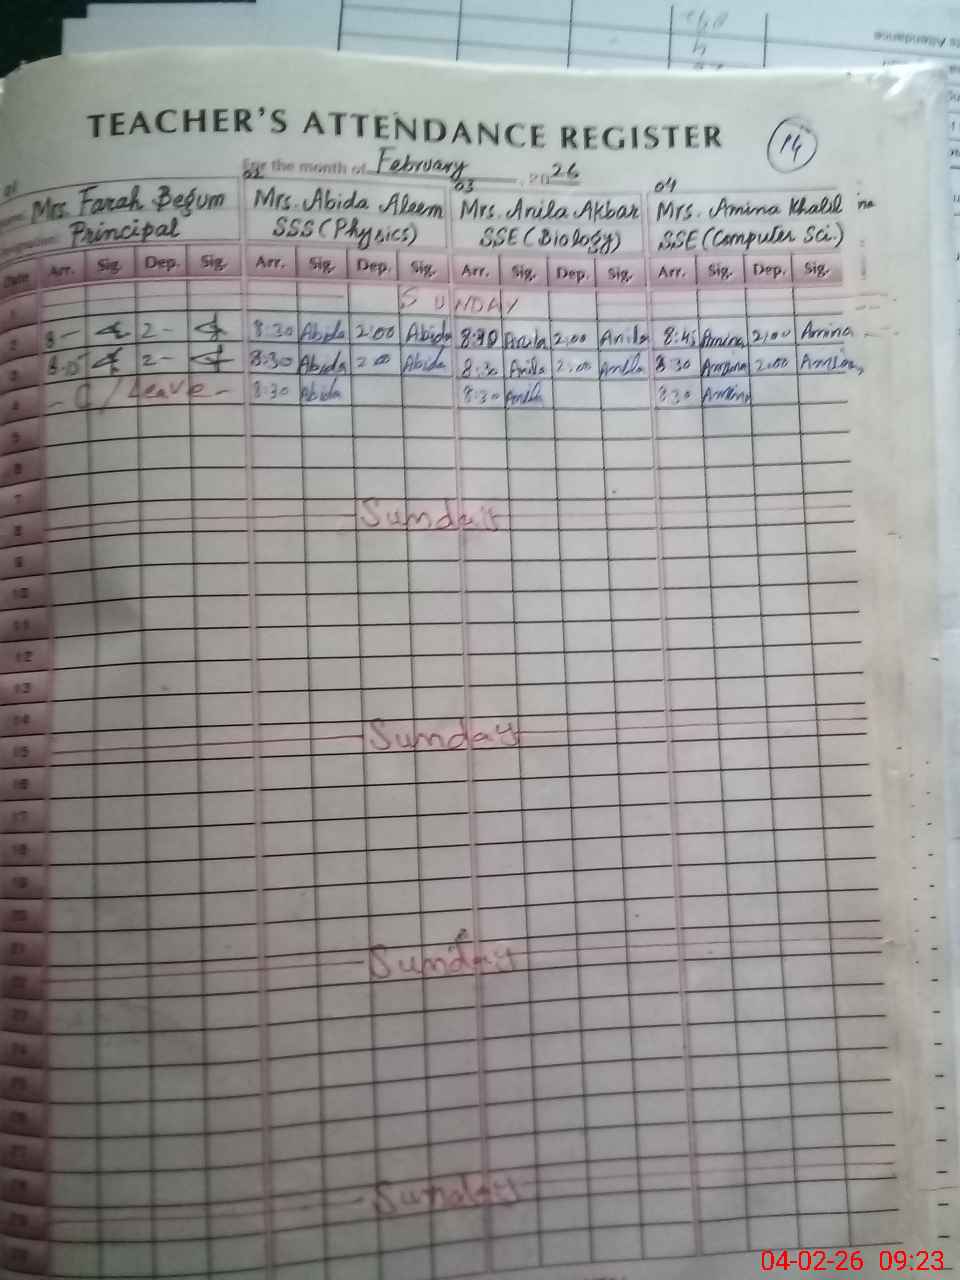 TEACHER'S ATTENDANCE REGISTER
14
For the month of February, 2026
01 03 04
Mrs. Farah Begum Mrs. Abida Aleem Mrs. Anila Akbar Mrs. Amina Khalil
Principal SSS (Physics) SSE (Biology) SSE (Computer Sci.)
Date Arr. Sig. Dep. Sig. Arr. Sig. Dep. Sig. Arr. Sig. Dep. Sig. Arr. Sig. Dep. Sig.
1 SUNDAY
2 8- 2- 8:30 Abida 2:00 Abida 8:30 Anila 2:00 Anila 8:45 Amina 2:00 Amina
3 8.05 2- 8:30 Abida 2:00 Abida 8:30 Anila 2:00 Anila 8:30 Amina 2:00 Amina
4 C/Leave - 8:30 Abida 8:30 Anila 8:30 Amina
5
6
7
8 Sunday
9
10
11
12
13
14
15 Sunday
16
17
18
19
20
21
22 Sunday
23
24
25
26
27
28 Sunday
29
30
04-02-26 09:23